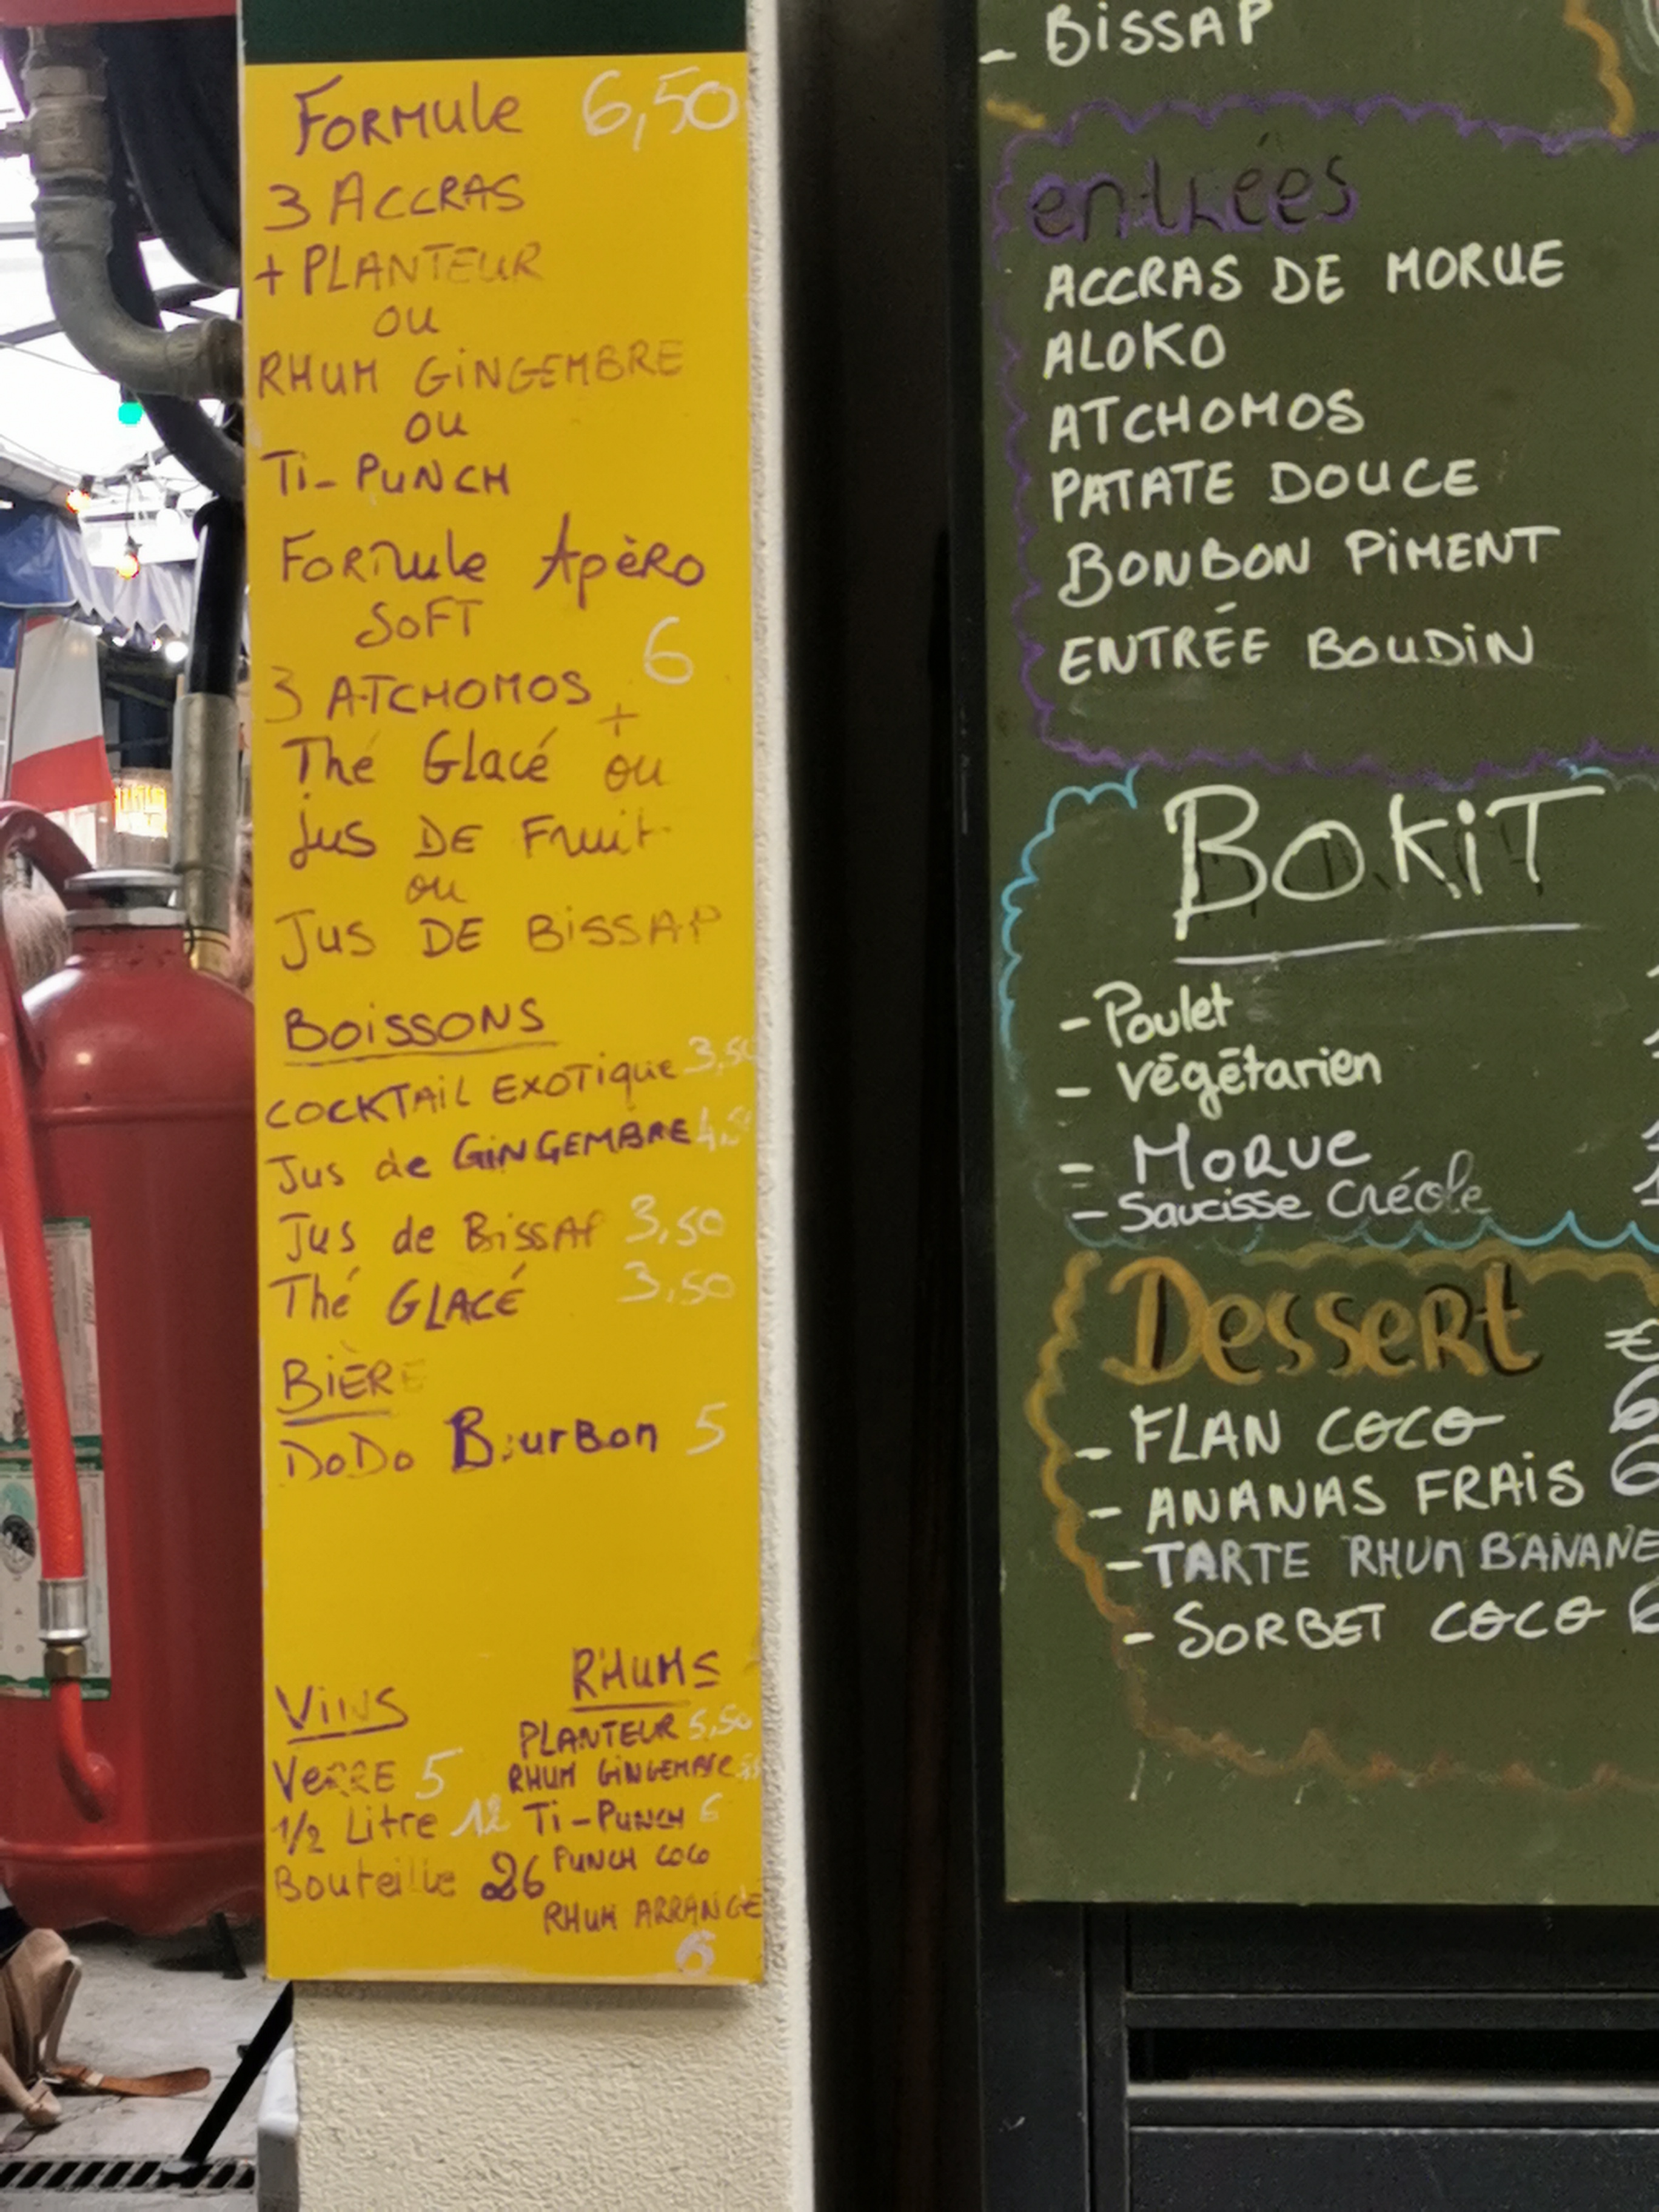 Formule 6,50
3 ACCRAS
+ PLANTEUR
OU
RHUM GINGEMBRE
OU
Ti-PUNCH
Formule Apèro
SOFT
6
3 ATCHOMOS +
Thé Glacé ou
Jus DE Fruit
ou
Jus DE BISSAP
BOISSONS
COCKTAIL EXOTIQUE 3,50
Jus de GINGEMBRE 4,50
Jus de BISSAP 3,50
Thé GLACÉ 3,50
BIÈRE
DODO BourBon 5
VINS
VERRE 5
1/2 Litre 12
Bouteille 26
RHUMS
PLANTEUR 5,50
RHUM GINGEMBRE
Ti-PUNCH 6
PUNCH COCO
RHUM ARRANGÉ
6
- BISSAP
entrées
ACCRAS DE MORUE
ALOKO
ATCHOMOS
PATATE DOUCE
BONBON PIMENT
ENTRÉE BOUDIN
BOKIT
- Poulet
- Végétarien
- MORUE
- Saucisse Créole
Dessert €
- FLAN COCO 6
- ANANAS FRAIS 6
- TARTE RHUM BANANE
- SORBET COCO 6